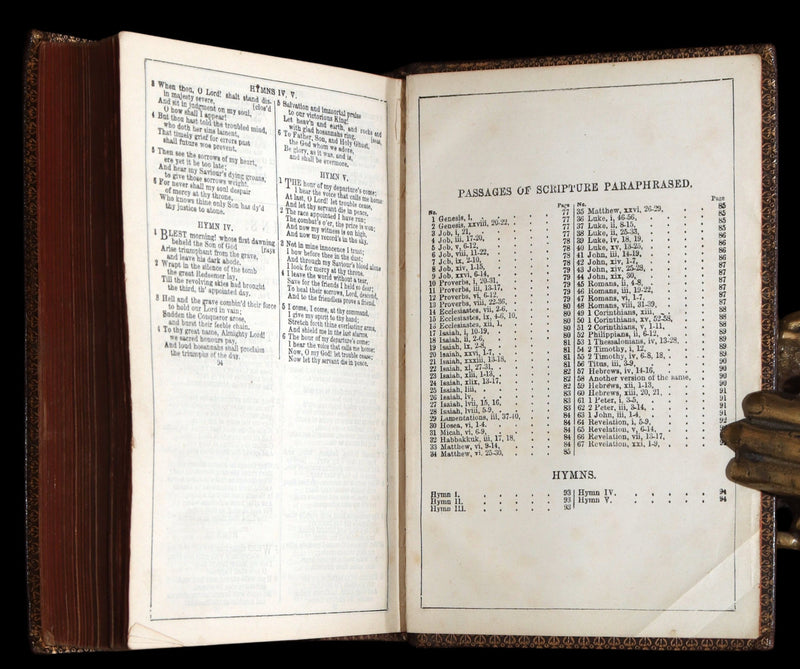 HYMNS IV, V.
3 When thou, O Lord! shalt stand dis-
in majesty severe, [clos'd
And sit in judgment on my soul,
O how shall I appear!
4 But thou hast told the troubled mind,
who doth her sins lament,
That timely grief for errors past
shall future woe prevent.
5 Then see the sorrows of my heart,
ere yet it be too late;
And hear my Saviour's dying groans,
to give those sorrows weight.
6 For never shall my soul despair
of mercy at thy throne,
Who knows thine only Son has dy'd
thy justice to atone.
HYMN IV.
1 BLEST morning! whose first dawning
beheld the Son of God [rays
Arise triumphant from the grave,
and leave his dark abode.
2 Wrapt in the silence of the tomb
the great Redeemer lay,
Till the revolving skies had brought
the third, th' appointed day.
3 Hell and the grave combin'd their force
to hold our Lord in vain;
Sudden the Conqueror arose,
and burst their feeble chain.
4 To thy great name, Almighty Lord!
we sacred honours pay,
And loud hosannahs shall proclaim
the triumphs of the day.
94
5 Salvation and immortal praise
to our victorious King!
Let heav'n and earth, and rocks and
with glad hosannahs ring. [seas,
6 To Father, Son, and Holy Ghost,
the God whom we adore,
Be glory, as it was, and is,
and shall be evermore.
HYMN V.
1 THE hour of my departure's come;
I hear the voice that calls me home:
At last, O Lord! let trouble cease,
And let thy servant die in peace.
2 The race appointed I have run;
The combat's o'er, the prize is won;
And now my witness is on high,
And now my record's in the sky.
3 Not in mine innocence I trust;
I bow before thee in the dust;
And through my Saviour's blood alone
I look for mercy at thy throne.
4 I leave the world without a tear,
Save for the friends I held so dear;
To heal their sorrows, Lord, descend,
And to the friendless prove a friend.
5 I come, I come, at thy command,
I give my spirit to thy hand;
Stretch forth thine everlasting arms,
And shield me in the last alarms.
6 The hour of my departure's come;
I hear the voice that calls me home:
Now, O my God! let trouble cease;
Now let thy servant die in peace.
PASSAGES OF SCRIPTURE PARAPHRASED.
No. Page
1 Genesis, i. 77
2 Genesis, xxviii, 20-22, 77
3 Job, i, 21, 77
4 Job, iii, 17-20, 78
5 Job, v, 6-12, 78
6 Job, viii, 11-22, 78
7 Job, ix, 2-10, 78
8 Job, xiv, 1-15, 78
9 Job, xxvi, 6-14, 79
10 Proverbs, i, 20-31, 79
11 Proverbs, iii, 13-17, 79
12 Proverbs, vi, 6-12, 79
13 Proverbs, viii, 22-36, 80
14 Ecclesiastes, vii, 2-6, 80
15 Ecclesiastes, ix, 4-6, 10, 80
16 Ecclesiastes, xii, 1, 80
17 Isaiah, i, 10-19, 80
18 Isaiah, ii, 2-6, 81
19 Isaiah, ix, 2-8, 81
20 Isaiah, xxvi, 1-7, 81
21 Isaiah, xxxiii, 13-18, 81
22 Isaiah, xl, 27-31, 81
23 Isaiah, xlii, 1-13, 82
24 Isaiah, xlix, 13-17, 82
25 Isaiah, liii, 82
26 Isaiah, lv, 83
27 Isaiah, lvii, 15, 16, 83
28 Isaiah, lviii, 5-9, 83
29 Lamentations, iii, 37-40, 84
30 Hosea, vi, 1-4, 84
31 Micah, vi, 6-9, 84
32 Habbakkuk, iii, 17, 18, 84
33 Matthew, vi, 9-14, 84
34 Matthew, xi, 25-30, 85
No. Page
35 Matthew, xxvi, 26-29, 85
36 Luke, i, 46-56, 85
37 Luke, ii, 8-15, 85
38 Luke, ii, 25-33, 85
39 Luke, iv, 18, 19, 86
40 Luke, xv, 13-25, 86
41 John, iii, 14-19, 86
42 John, xiv, 1-7, 86
43 John, xiv, 25-28, 87
44 John, xix, 30, 87
45 Romans, ii, 4-8, 87
46 Romans, iii, 19-22, 87
47 Romans, vi, 1-7, 87
48 Romans, viii, 31-39, 87
49 1 Corinthians, xiii, 88
50 1 Corinthians, xv, 52-58, 88
51 2 Corinthians, v, 1-11, 88
52 Philippians, ii, 6-12, 89
53 1 Thessalonians, iv, 13-28, 89
54 2 Timothy, i, 12, 89
55 2 Timothy, iv, 6-8, 18, 89
56 Titus, iii, 3-9, 90
57 Hebrews, iv, 14-16, 90
58 Another version of the same, 90
59 Hebrews, xii, 1-13, 90
60 Hebrews, xiii, 20, 21, 91
61 1 Peter, i, 3-5, 91
62 2 Peter, iii, 3-14, 91
63 1 John, iii, 1-4, 91
64 Revelation, i, 5-9, 92
65 Revelation, v, 6-14,
66 Revelation, vii, 13-17,
67 Revelation, xxi, 1-9,
HYMNS.
Hymn I. 93
Hymn II. 93
Hymn III. 93
Hymn IV. 94
Hymn V. 94